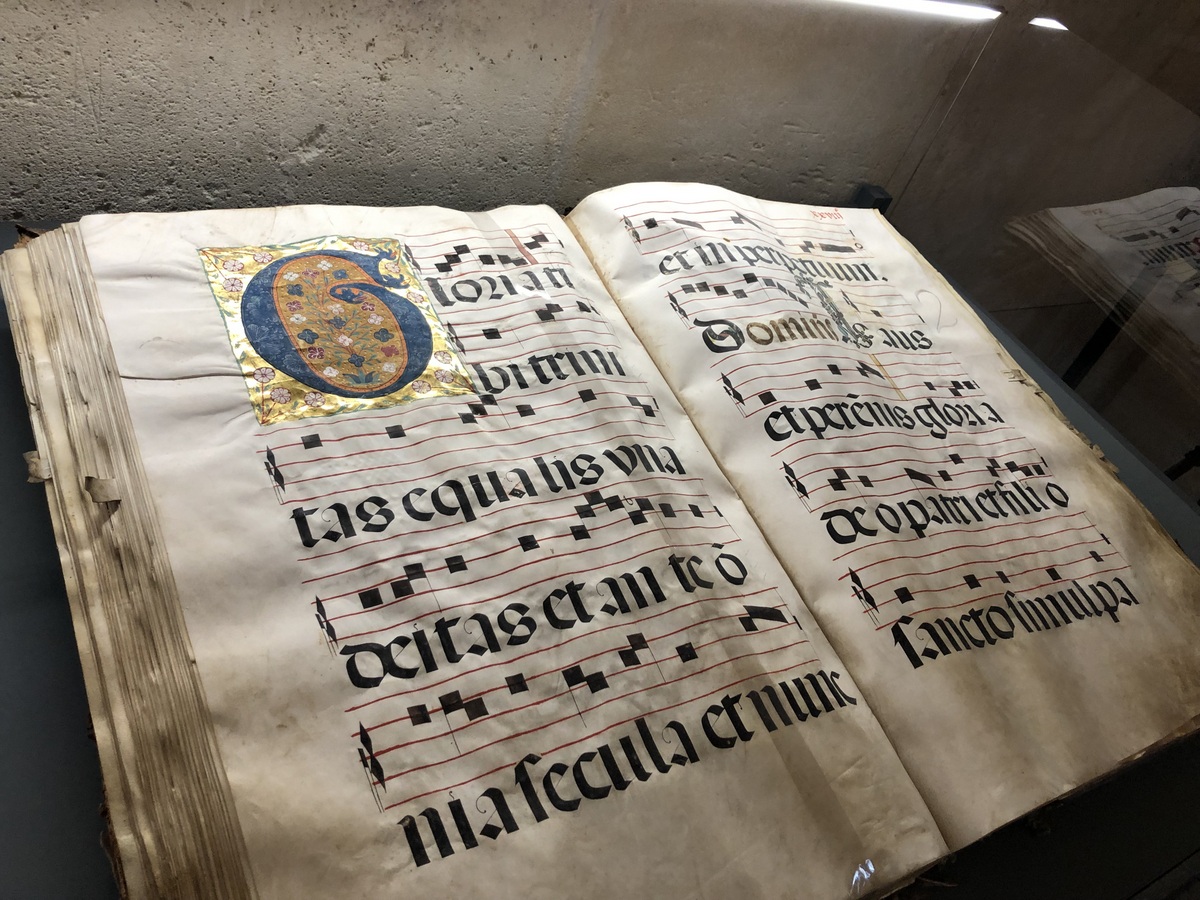 Gloria ti
bi trini
tas equalis vna
deitas et an te o
nia secula et nunc
et in perpetuum.
et perēnis gloria
deo patri et filio
sancto simul pa